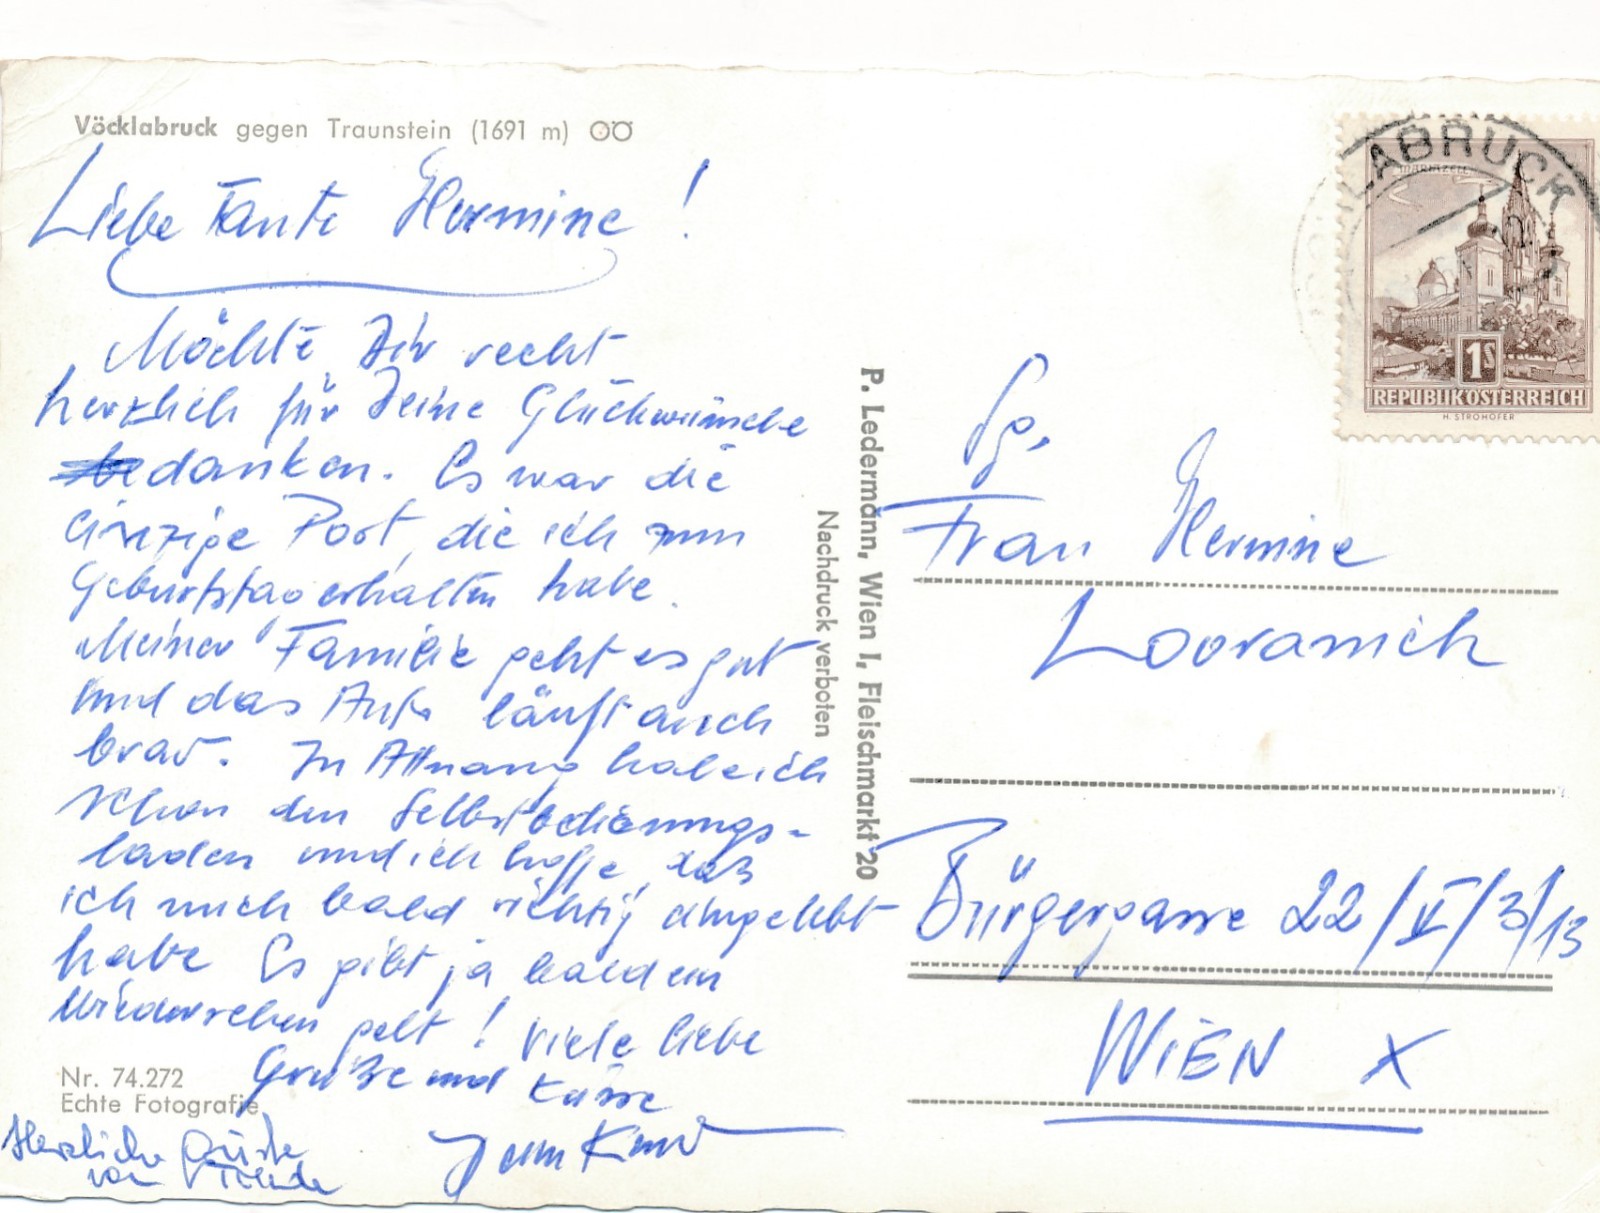 Vöcklabruck gegen Traunstein (1691 m) OÖ
Liebe Tante Hermine!
Möchte Dir recht
herzlich für Deine Glückwünsche
danken. Es war die
einzige Post, die ich zum
Geburtstag erhalten habe.
Meiner Familie geht es gut
und das Auto läuft auch
brav. In Attnang habe ich
schon den Selbstbedienungs-
laden und ich hoffe, daß
ich mich bald richtig eingelebt
habe Es gibt ja bald ein
Wiedersehen gelt! Viele liebe
Grüße und Küsse
Dein
Herzliche Grüße
von
Nr. 74.272
Echte Fotografie
P. Ledermann, Wien I, Fleischmarkt 20
Nachdruck verboten
LABRUCK
MARIAZELL
1S
REPUBLIK ÖSTERREICH
H. STROHOFER
Frau Hermine
Lovranich
Bürgergasse 22/V/3/13
WIEN X